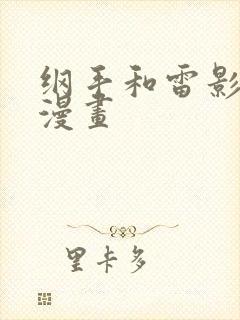 纲手和雷影
漫畫
里卡多